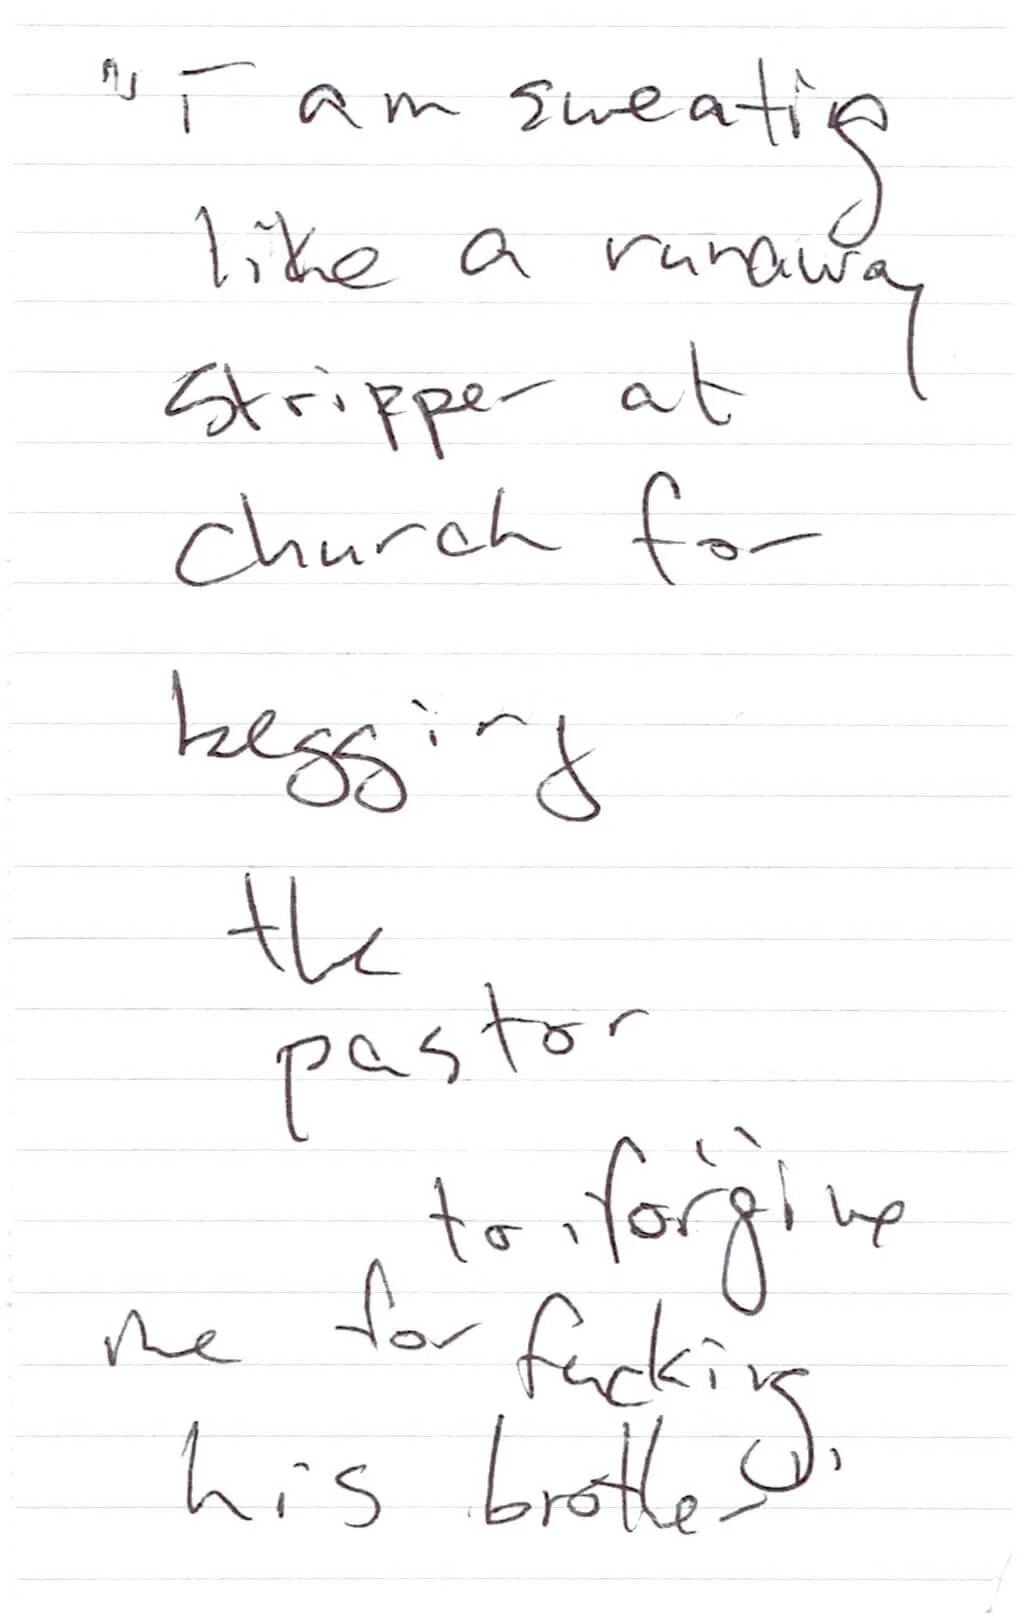 "I am sweatig
like a runaway
stripper at
church for
begging
the
pastor
to forgive
me for fucking
his brother"